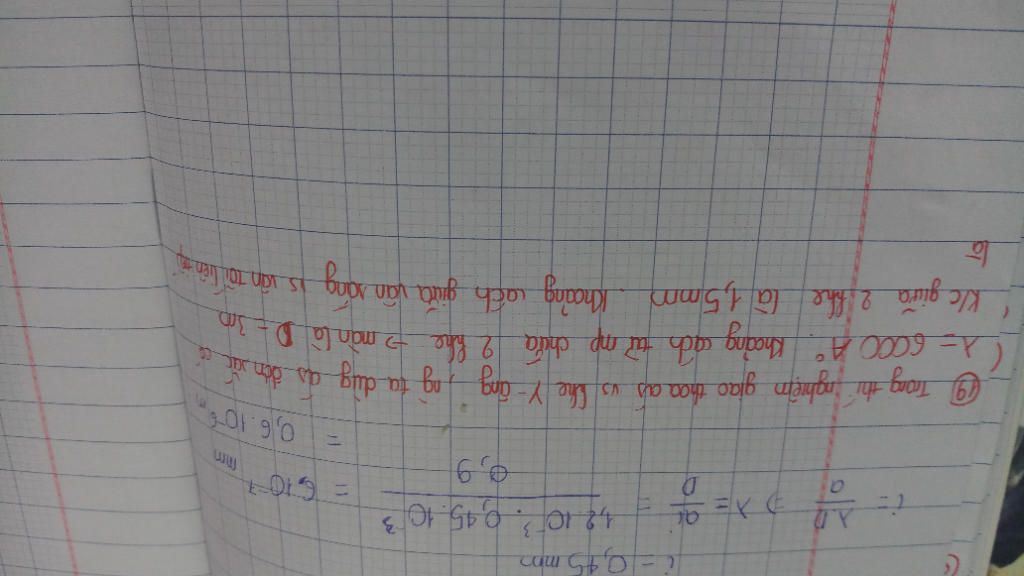 i = 0,45 mm
i = λD/a ⇒ λ = ai/D = 1,2.10⁻³ . 0,45.10⁻³ / 0,9 = 6.10⁻⁷ mm
= 0,6.10⁻⁶ m
(19) Trong thí nghiệm giao thoa as vs khe Y-âng, ng ta dùg as đơn sắc có
λ = 6000 A°. Khoảng cách từ mp chứa 2 khe → màn là D = 3m
K/c giữa 2 khe là 1,5mm. Khoảng cách giữa vân sáng vs vân tối liên tiếp
là